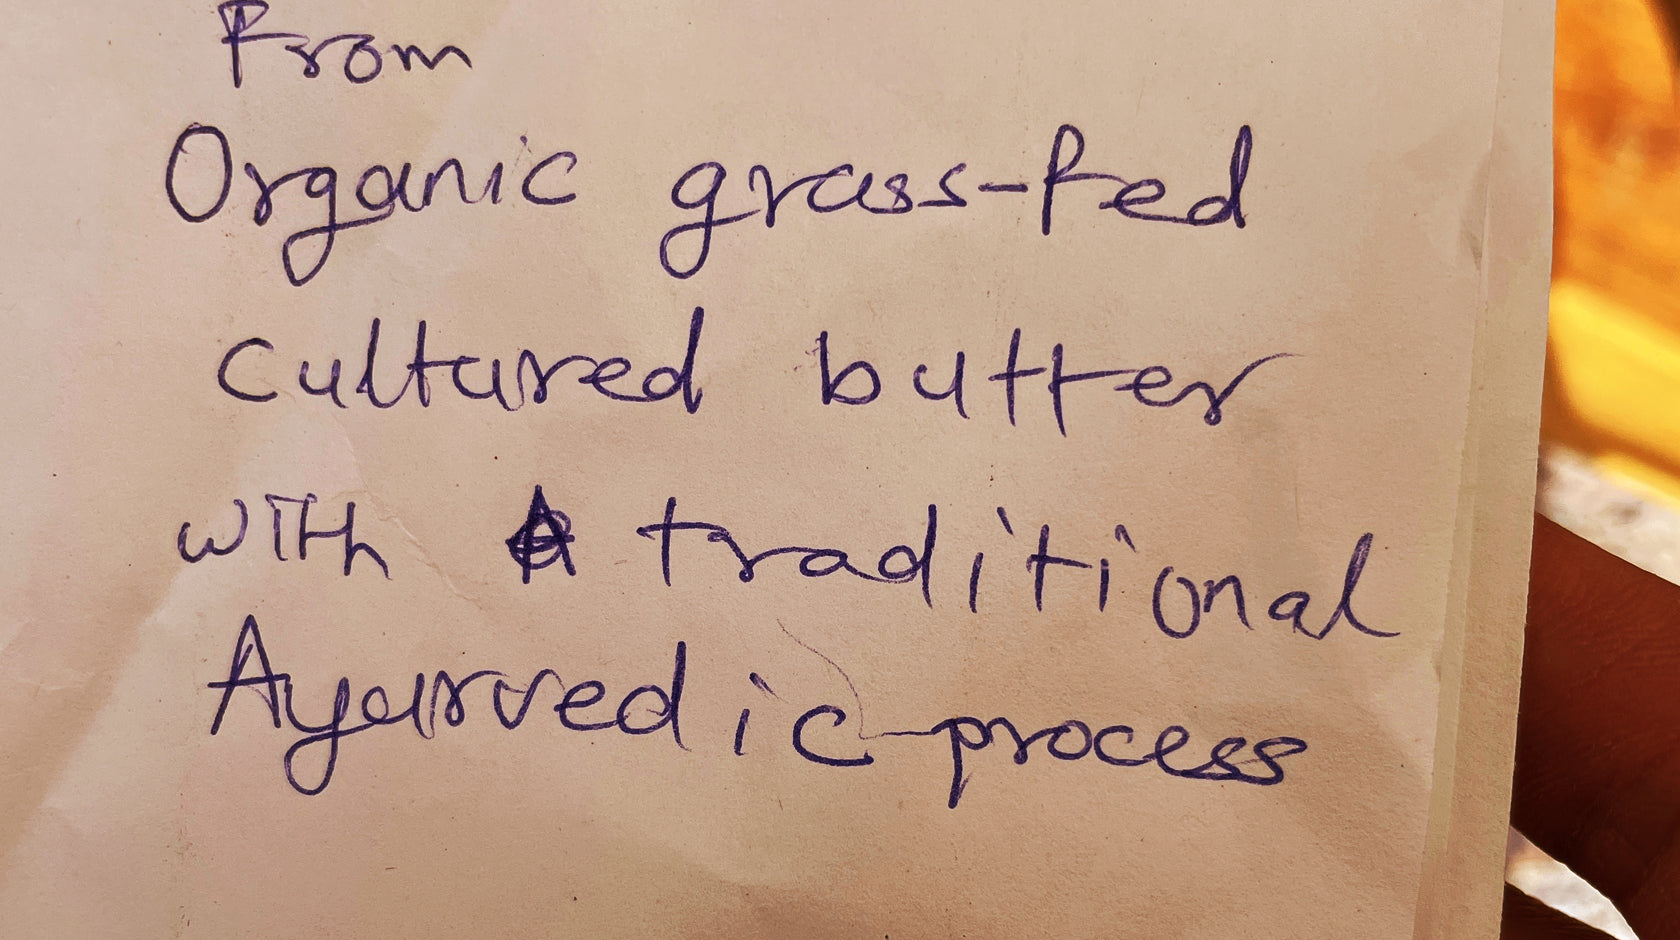 From
Organic grass-fed
cultured butter
with A traditional
Ayurvedic process